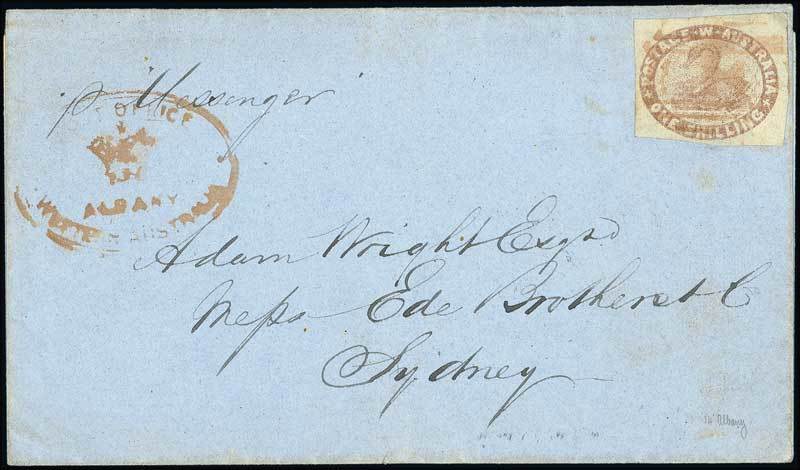 POSTAGE W. AUSTRALIA
ONE SHILLING
p. Messenger
OFFICE
ALBANY
WESTERN AUSTRALIA
Adam Wright Esqr
Messrs Ede Brothers & C
Sydney
Albany